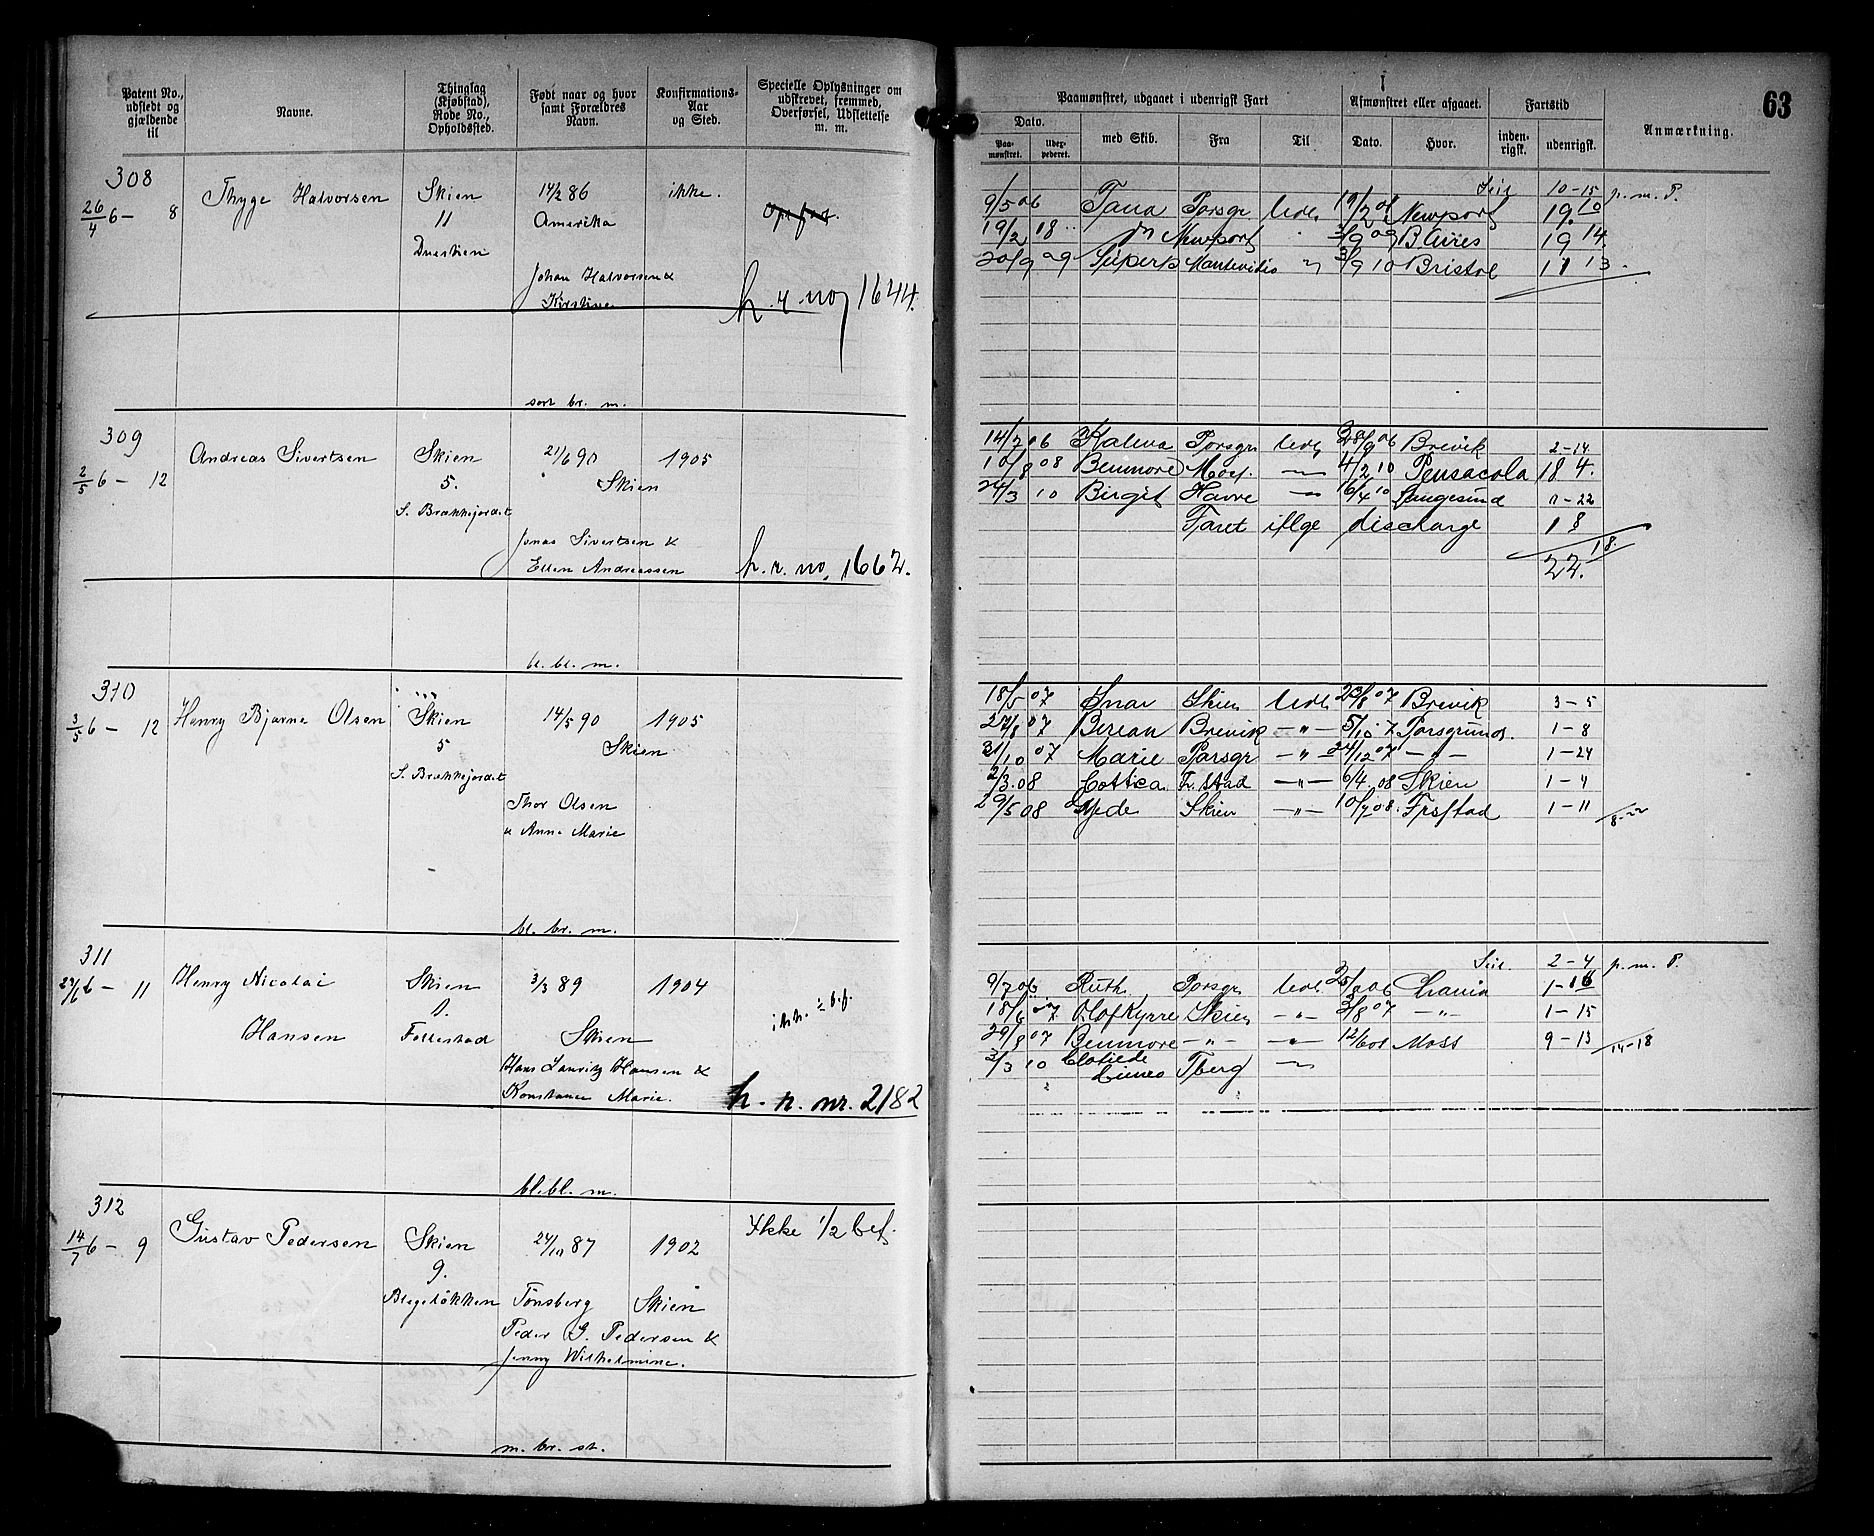 Patent No., udstedt og gjældende til
Navne.
Thinglag (Kjøbstad), Rode No., Opholdssted.
Født naar og hvor samt Forældres Navn.
Konfirmations-Aar og Sted.
Specielle Oplysninger om udskrevet, fremmed, Overførsel, Udslettelse m. m.
308
26/4 6 — 8
Thyge Halvorsen
Skien
11
14/2 86
Amerika
Johan Halvorsen &
Kirstine
ikke.
h. r. no 1644.
sort br. m.
309
2/5 6 — 12
Andreas Sivertsen
Skien
5.
S. Brækkejordet
21/6 90
Skien
1905
Jonas Sivertsen &
Ellen Andreassen
h. r. no. 1662.
bl. bl. m.
310
3/5 6 — 12
Henry Bjarne Olsen
Skien
5
S. Brækkejordet
14/5 90
Skien
1905
Thor Olsen
& Anne Marie
bl. br. m.
311
27/6 6 — 11
Henry Nicolai
Hansen
Skien
1.
Follestad
3/3 89
Skien
1904
Hans Lauritz Hansen &
Konstance Marie.
h. r. nr. 2182
bl. bl. m.
312
14/7 6 — 9
Gustav Pedersen
Skien
9.
Blegeløkken
24/10 87
Tønsberg
1902
Skien
Peder G. Pedersen &
Jenny Wilhelmine.
Ikke 1/2 bef.
m. br. st.
63
Paamønstret, udgaaet i udenrigsk Fart
Afmønstret eller afgaaet.
Fartstid
Anmærkning.
Dato.
Paamønstret.
Udexpederet.
med Skib.
Fra
Til
Dato.
Hvor.
indenrigsk.
udenrigsk.
Seil 10-15 p. m. P.
9/5 06 Tana Porsgr Udl 19/2 Newport 19. 10
19/2 18 Newport 3/9 09 B. Aires 19 14.
20/9 09 Superb Montevideo 3/9 10 Bristol 11 13.
14/7 06 Kalina Porsgr Udl 28/9 06 Brevik 2-14
10/8 08 Benmore Mos. 4/2 10 Pensacola 18 4.
24/3 10 Birgit Havre 16/4 10 Langesund 0-22
Faret iflge discharge 18
22. 18.
18/5 07 Snar Skien Udl 23/8 07 Brevik 3-5
27/8 07 Berean Brevik —"— 5/10 7 Porsgrund. 1-8
31/10 07 Marie Porsgr —"— 24/12 07 —"— 1-24
2/3 08 Cottica Fr. stad —"— 6/4 08 Skien 1-4
29/5 08 Skien —"— 10/7 08. Frstad 1-11
8-22
Seil. 2-4 p. m. P.
9/7 06 Ruth Porsgr Udl 25/8 06 Chania 1-16
18/6 07 Olaf Kyrre Skien —"— 3/8 07 —"— 1-15
29/8 07 Benmore —"— —"— 12/6 08 Moss 9-13
14-18
3/3 10 Clotilde Cuneo Tberg